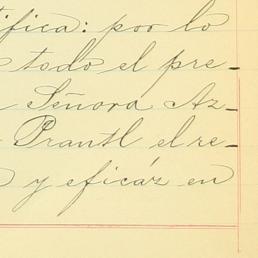 tifica: por lo
todo el pre-
Señora Az-
Prantl el re-
y eficáz en